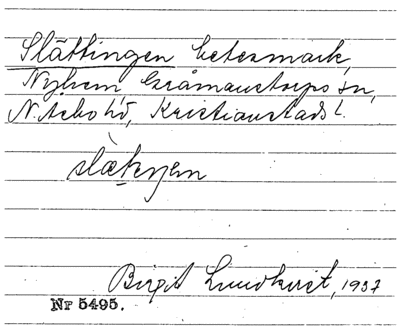 Slättingen betesmark,
Nyhem Gråmanstorps sn,
N. Åsbo hd, Kristianstads l.
slætɳen
Birgit Lundkvist, 1937
Nr 5495.